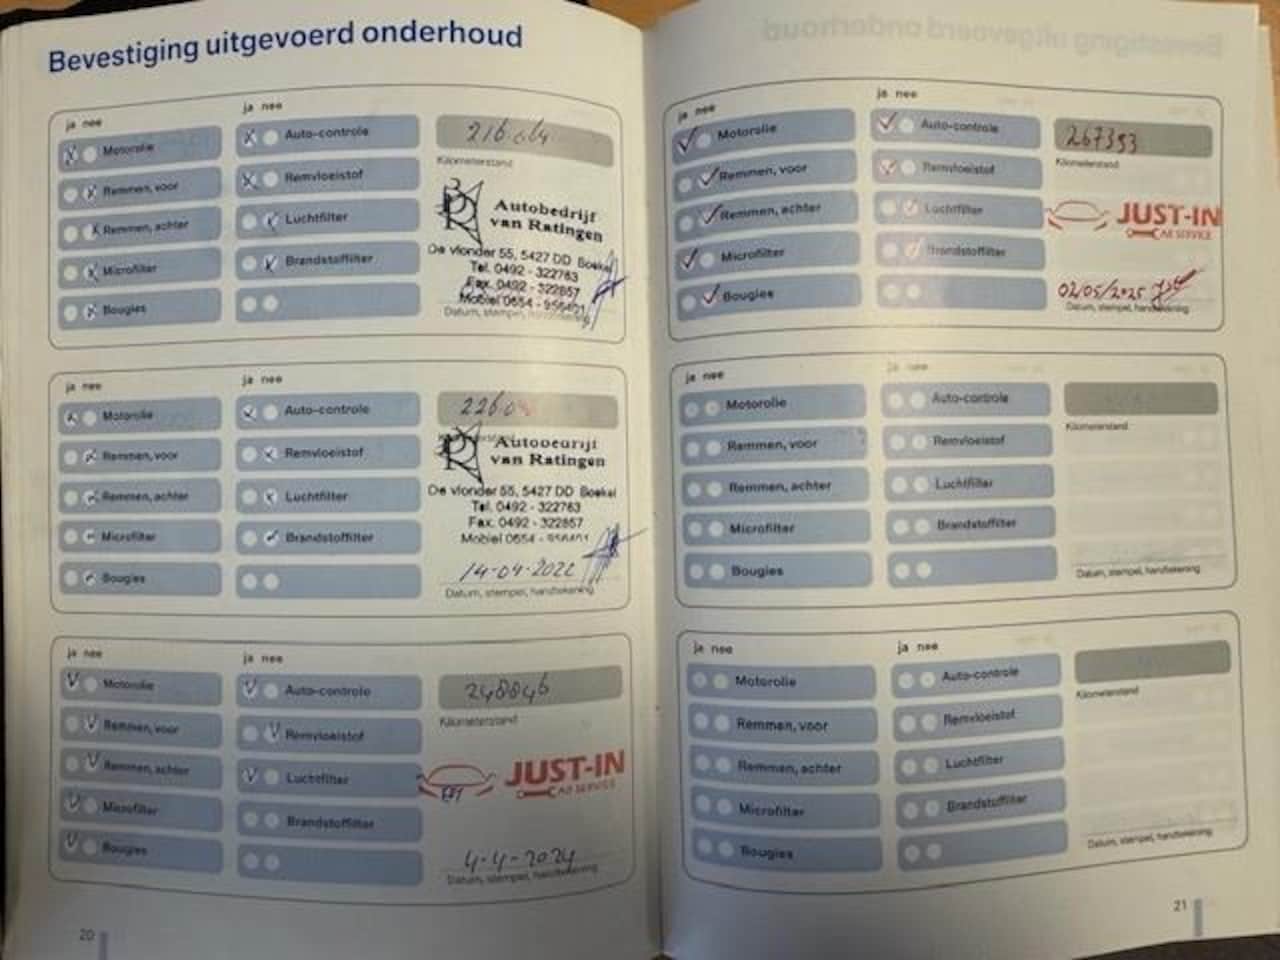 Bevestiging uitgevoerd onderhoud
ja nee
ja nee
Motorolie
Remmen, voor
Remmen, achter
Microfilter
Bougies
Auto-controle
Remvloeistof
Luchtfilter
Brandstoffilter
Kilometerstand
Autobedrijf
van Ratingen
De vlonder 55, 5427 DD Boekel
Tel. 0492 - 322763
Fax. 0492 - 322857
Mobiel 0654 -
Datum, stempel, handtekening
ja nee
ja nee
Motorolie
Remmen, voor
Remmen, achter
Microfilter
Bougies
Auto-controle
Remvloeistof
Luchtfilter
Brandstoffilter
Autobedrijf
van Ratingen
De vlonder 55, 5427 DD Boekel
Tel. 0492 - 322763
Fax. 0492 - 322857
Mobiel 0654 -
14-04-2022
Datum, stempel, handtekening
ja nee
ja nee
Motorolie
Remmen, voor
Remmen, achter
Microfilter
Bougies
Auto-controle
Remvloeistof
Luchtfilter
Brandstoffilter
248846
Kilometerstand
JUST-IN
CAR SERVICE
4-4-2024
Datum, stempel, handtekening
20
ja nee
ja nee
Motorolie
Remmen, voor
Remmen, achter
Microfilter
Bougies
Auto-controle
Remvloeistof
Luchtfilter
Brandstoffilter
267393
Kilometerstand
JUST-IN
CAR SERVICE
02/05/2025
Datum, stempel, handtekening
ja nee
ja nee
Motorolie
Remmen, voor
Remmen, achter
Microfilter
Bougies
Auto-controle
Remvloeistof
Luchtfilter
Brandstoffilter
Kilometerstand
Datum, stempel, handtekening
ja nee
ja nee
Motorolie
Remmen, voor
Remmen, achter
Microfilter
Bougies
Auto-controle
Remvloeistof
Luchtfilter
Brandstoffilter
Kilometerstand
Datum, stempel, handtekening
21